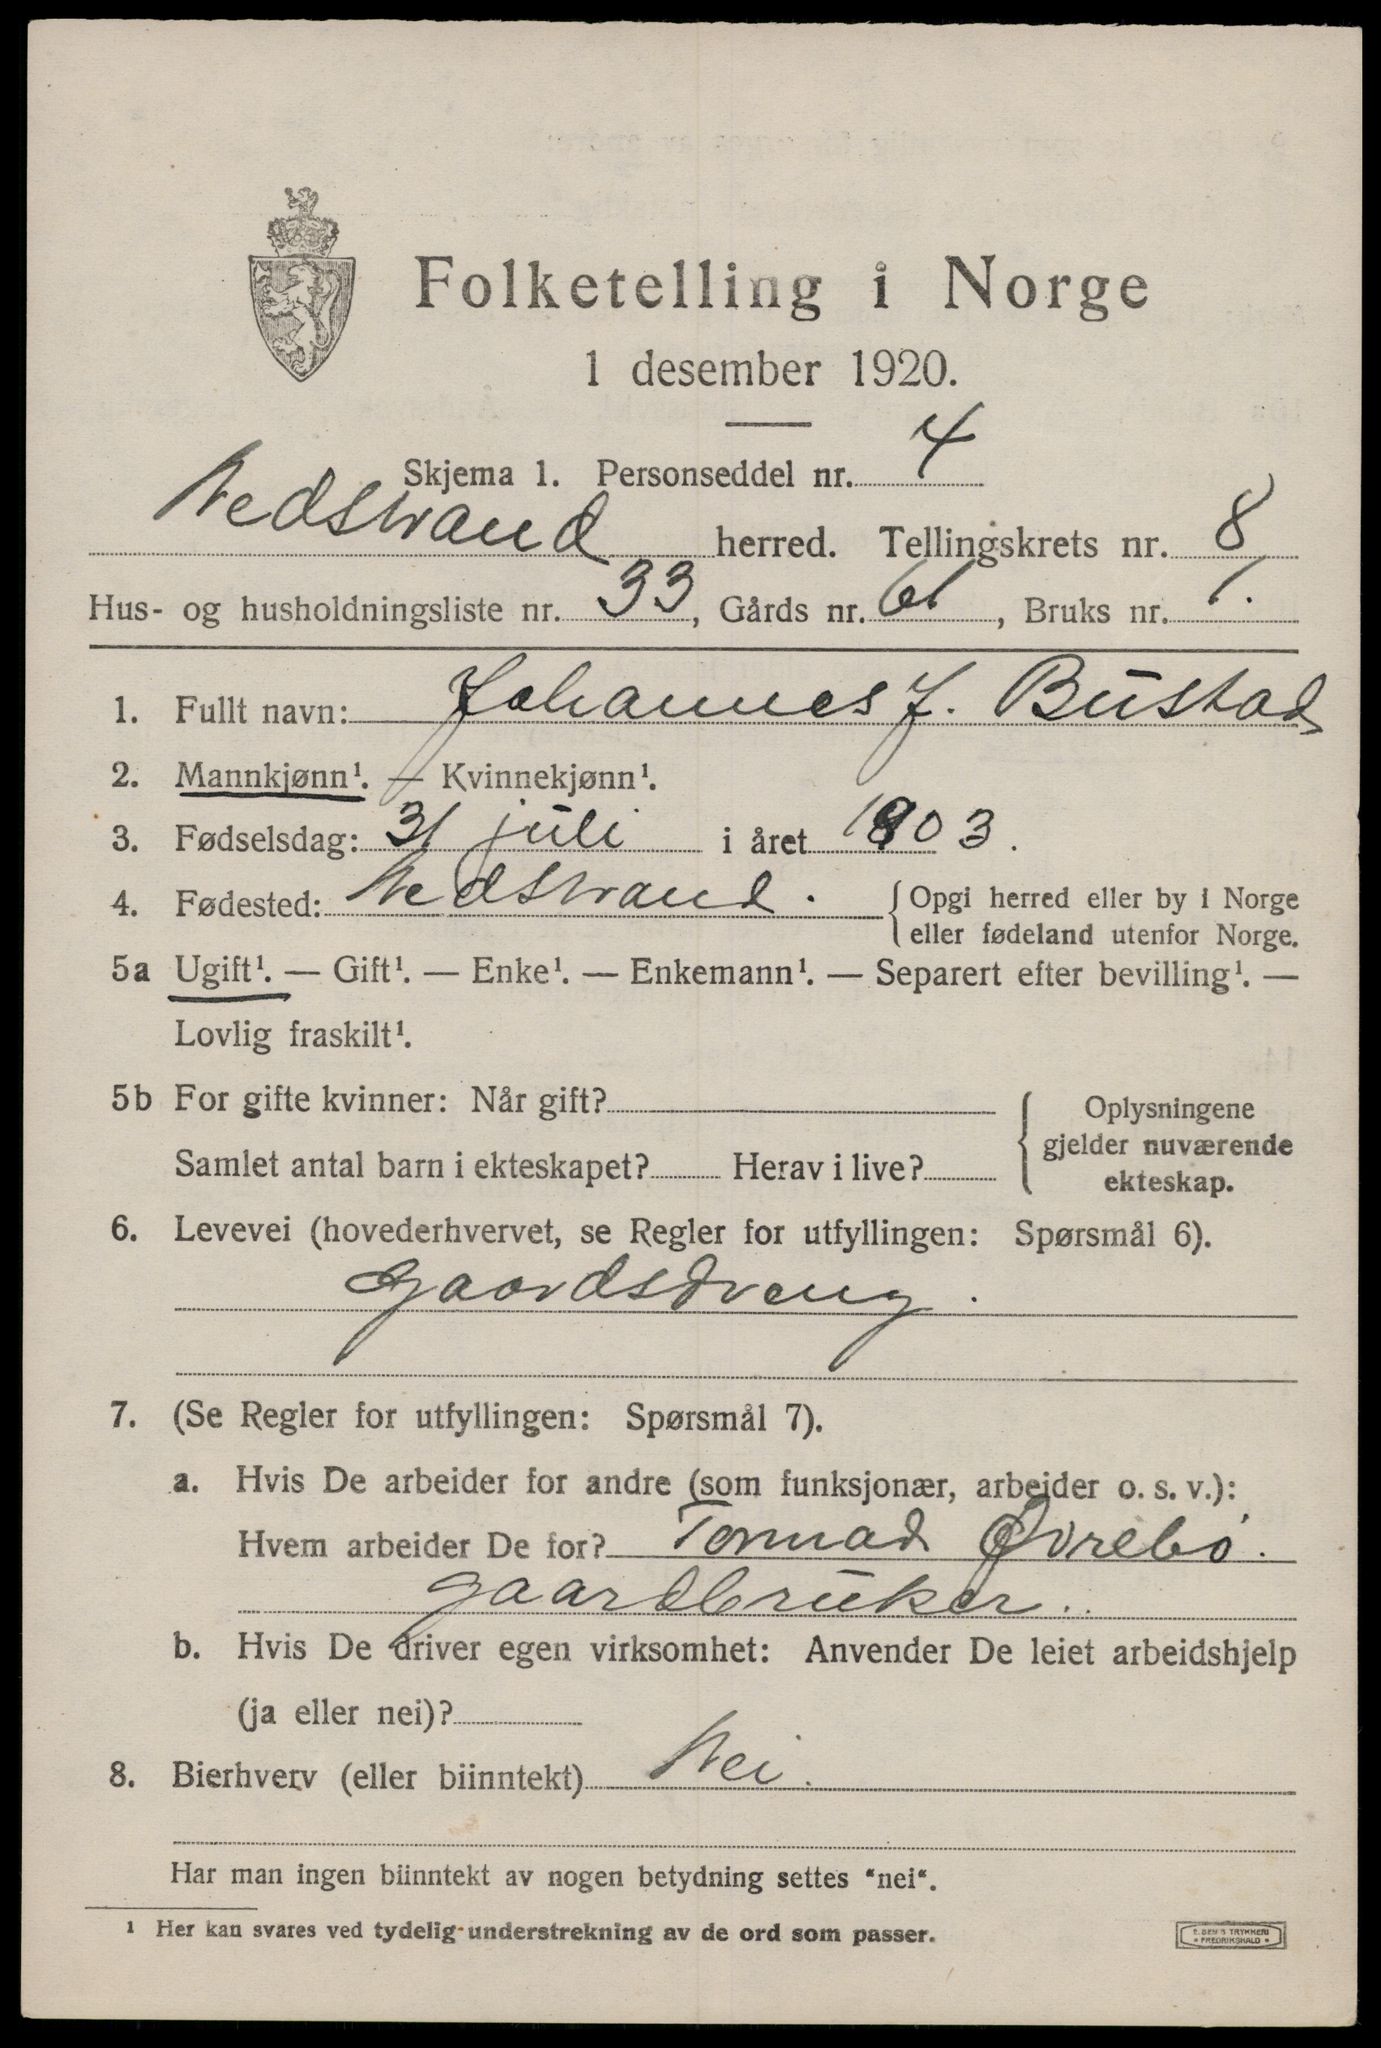 Folketelling i Norge
1 desember 1920.
Skjema 1. Personseddel nr. 4
Nedstrand herred. Tellingskrets nr. 8
Hus- og husholdningsliste nr. 33, Gårds nr. 61, Bruks nr. 1.
1. Fullt navn: Johannes J. Bustad
2. Mannkjønn¹. — Kvinnekjønn¹.
3. Fødselsdag: 31 juli i året 1903.
4. Fødested: Nedstrand. { Opgi herred eller by i Norge
eller fødeland utenfor Norge.
5a Ugift¹. — Gift¹. — Enke¹. — Enkemann¹. — Separert efter bevilling¹. —
Lovlig fraskilt¹.
5b For gifte kvinner: Når gift?
Samlet antal barn i ekteskapet? Herav i live?
{ Oplysningene
gjelder nuværende
ekteskap.
6. Levevei (hovederhvervet, se Regler for utfyllingen: Spørsmål 6).
Gaardsdreng.
7. (Se Regler for utfyllingen: Spørsmål 7).
a. Hvis De arbeider for andre (som funksjonær, arbeider o. s. v.):
Hvem arbeider De for? Tormod Øvrebø.
gaardbruker.
b. Hvis De driver egen virksomhet: Anvender De leiet arbeidshjelp
(ja eller nei)?
8. Bierhverv (eller biinntekt) Nei.
Har man ingen biinntekt av nogen betydning settes "nei".
¹ Her kan svares ved tydelig understrekning av de ord som passer.
TRYKKERI
FREDRIKSHALD